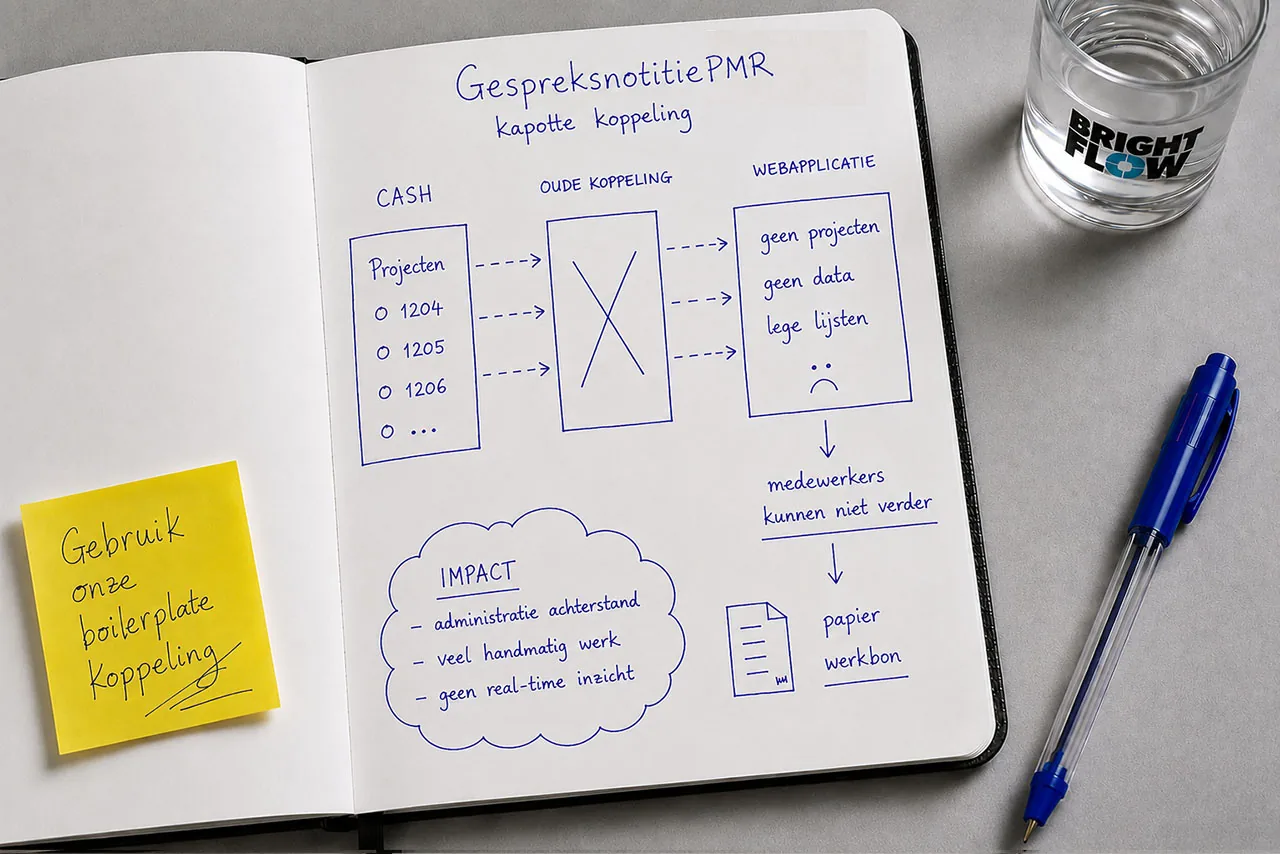 Gespreksnotitie PMR
kapotte koppeling
CASH
Projecten
1204
1205
1206
...
OUDE KOPPELING
WEBAPPLICATIE
geen projecten
geen data
lege lijsten
medewerkers
kunnen niet verder
papier
werkbon
IMPACT
- administratie achterstand
- veel handmatig werk
- geen real-time inzicht
Gebruik
onze
boilerplate
koppeling
BRIGHT
FLOW